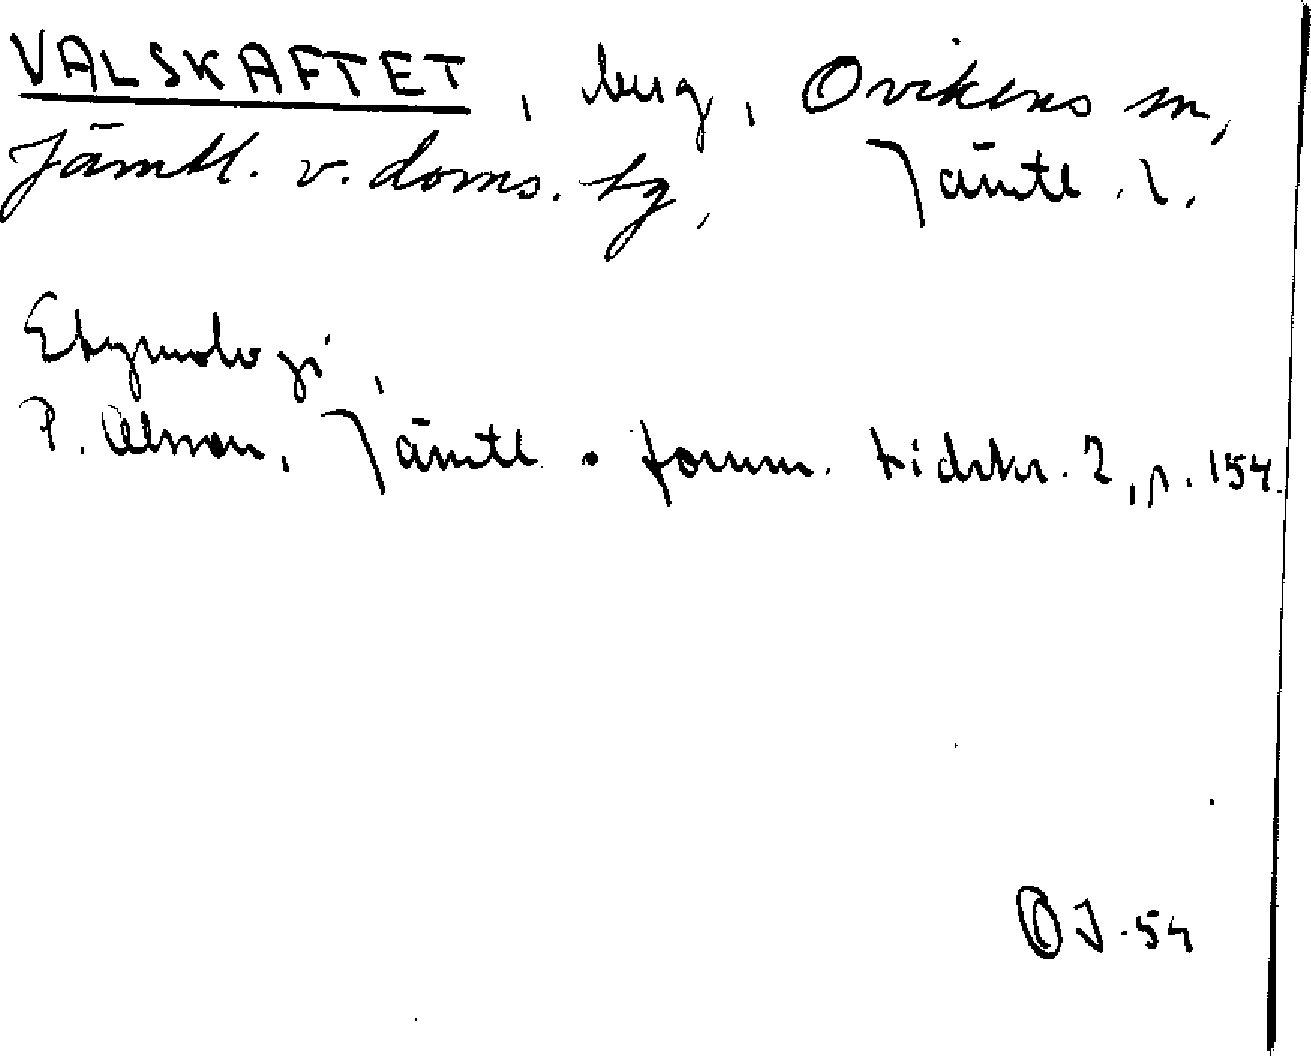 VALSKAFTET, berg, Ovikens sn,
Jämtl. v. doms. tg, Jämtl. l.
Etymologi,
P. Olsson, Jämtl. fornm. tidskr. 2, s. 154.
OJ. 54